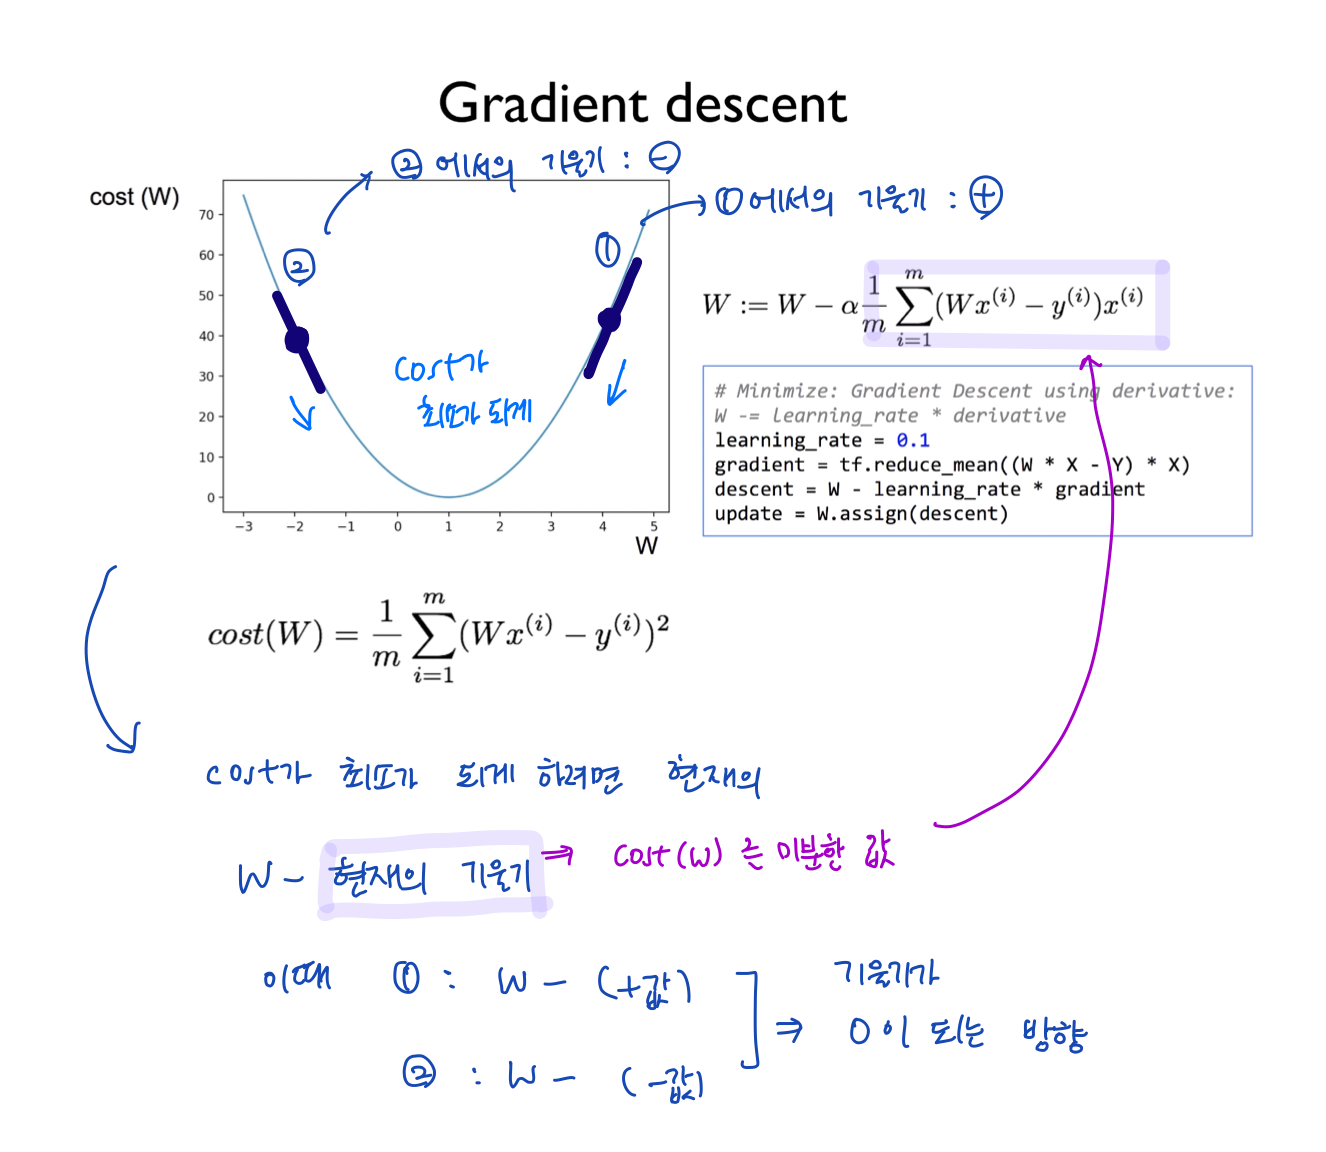 Gradient descent
②에서의 기울기 : ⊖
cost (W)
① 에서의 기울기 : ⊕
②
①
70
60
50
40
30
20
10
0
cost가
최소가 되게
−3 −2 −1 0 1 2 3 4 5
W
W := W − α 1/m ∑_{i=1}^{m} (Wx^{(i)} − y^{(i)})x^{(i)}
# Minimize: Gradient Descent using derivative:
W -= learning_rate * derivative
learning_rate = 0.1
gradient = tf.reduce_mean((W * X - Y) * X)
descent = W - learning_rate * gradient
update = W.assign(descent)
cost(W) = 1/m ∑_{i=1}^{m} (Wx^{(i)} − y^{(i)})^2
cost가 최소가 되게 하려면 현재의
W - 현재의 기울기 ⇒ cost(W) 를 미분한 값
이때 ① : W - (+값)
② : W - (-값)
⇒ 기울기가
0이 되는 방향